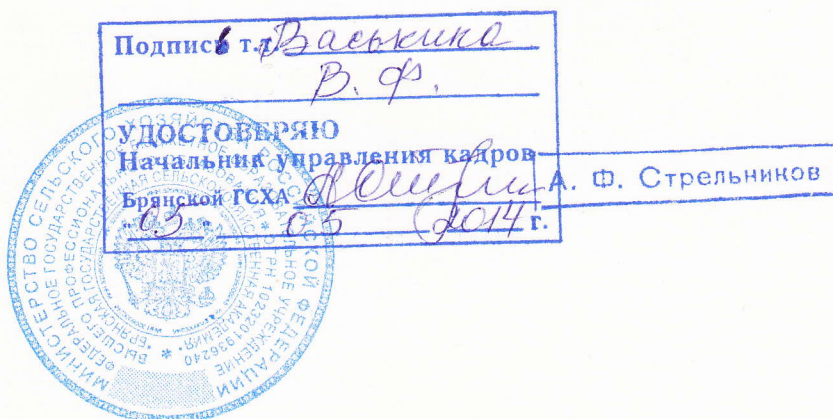 Подпись т.т. Васькина
В. Ф.
УДОСТОВЕРЯЮ
Начальник управления кадров
Брянской ГСХА
А. Ф. Стрельников
"03" 05 2014 г.
МИНИСТЕРСТВО СЕЛЬСКОГО ХОЗЯЙСТВА РОССИЙСКОЙ ФЕДЕРАЦИИ
ФЕДЕРАЛЬНОЕ ГОСУДАРСТВЕННОЕ УЧРЕЖДЕНИЕ
ВЫСШЕГО ПРОФЕССИОНАЛЬНОГО ОБРАЗОВАНИЯ * ОГРН 1023201936240
"БРЯНСКАЯ ГОСУДАРСТВЕННАЯ СЕЛЬСКОХОЗЯЙСТВЕННАЯ АКАДЕМИЯ"